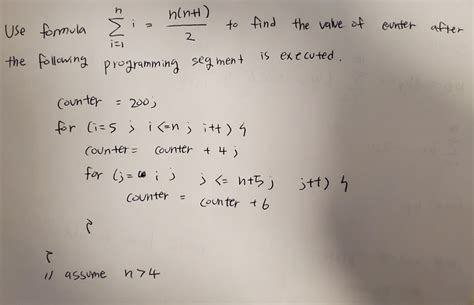 Use formula n Σ i=1 i = n(n+1)/2 to find the value of counter after
the following programming segment is executed.
counter = 200;
for (i=5 ; i <=n ; i++) {
counter = counter + 4 ;
for (j= i ; j <= n+5 ; j++) {
counter = counter + 6
}
}
// assume n>4